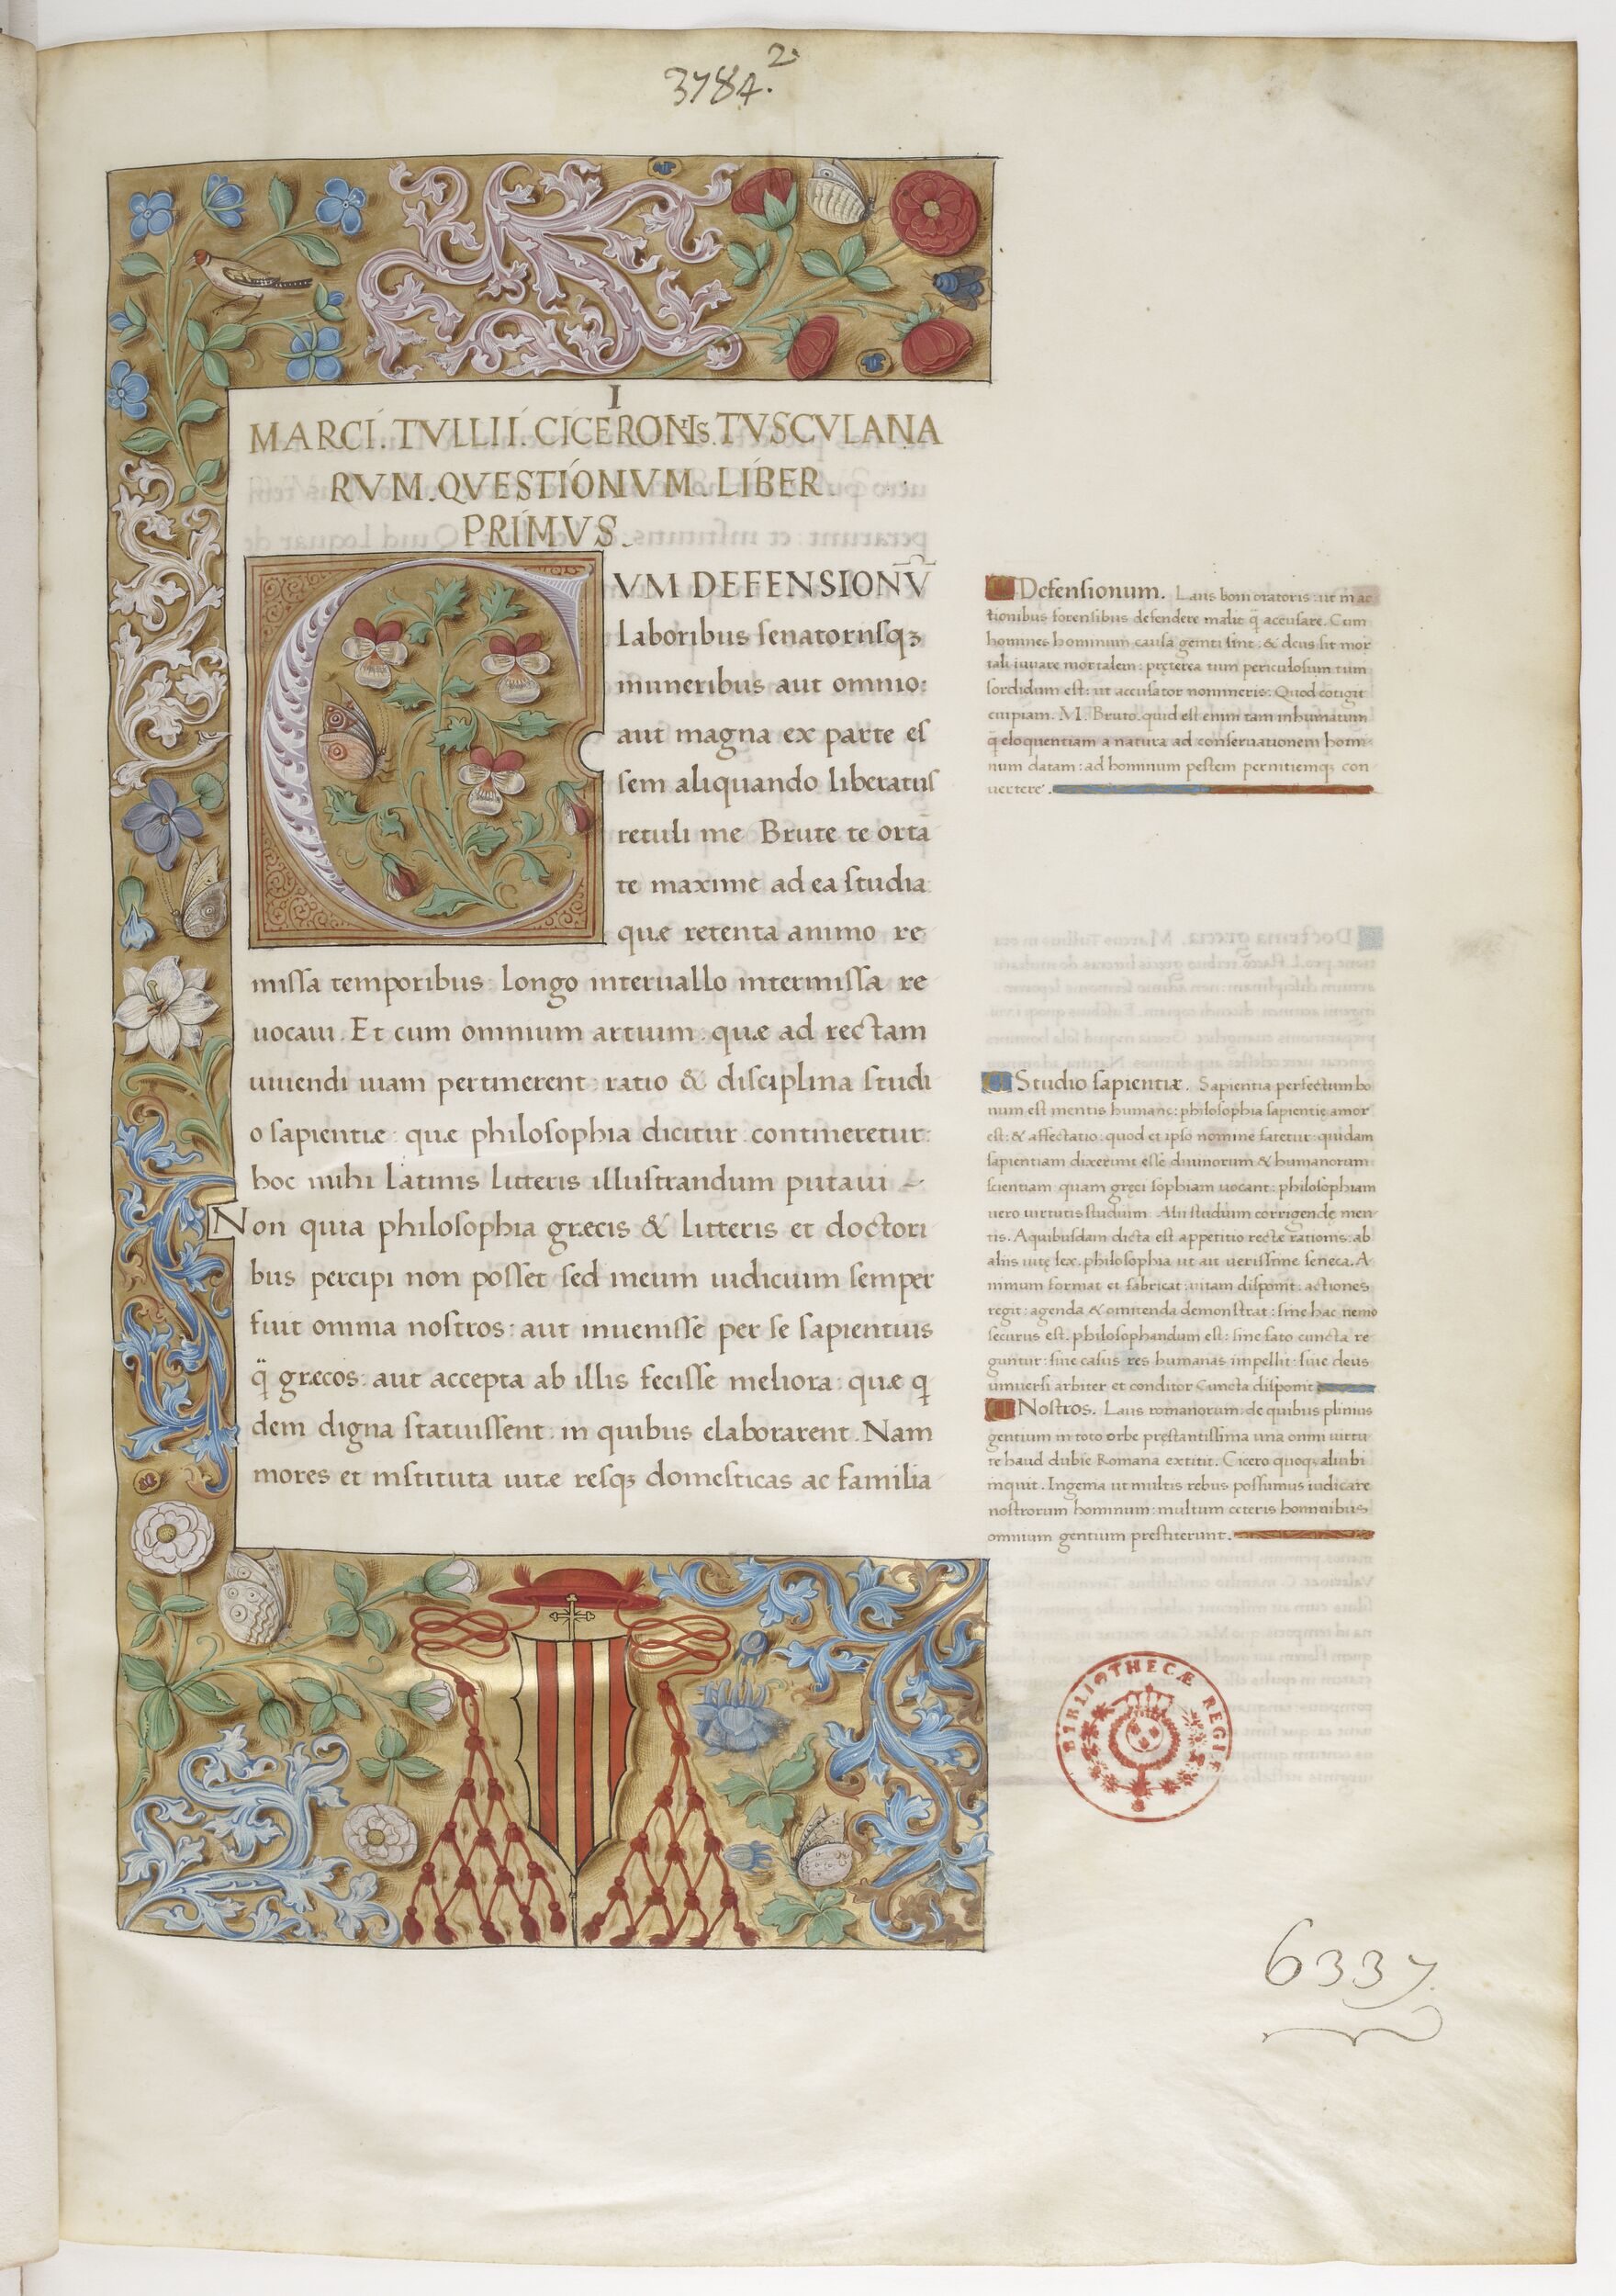 3784.2
I
MARCI. TVLLII. CICERONIS. TVSCVLANA
RVM. QVESTIONVM. LIBER.
PRIMVS.
CVM DEFENSIONV̅
laboribus senatoriisqꝫ
muneribus aut omnio:
aut magna ex parte es
sem aliquando liberatus
retuli me Brute te orta̅
te maxime ad ea studia
quæ retenta animo re
missa temporibus: longo interuallo intermissa re
uocaui. Et cum omnium artium: quæ ad rectam
uiuendi uiam pertinerent: ratio & disciplina studi
o sapientiæ: quæ philosophia dicitur: contineretur:
hoc mihi latinis litteris illustrandum putaui
Non quia philosophia græcis & litteris et doctori
bus percipi non posset sed meum iudicium semper
fuit omnia nostros: aut inuenisse per se sapientius
q̈ græcos: aut accepta ab illis fecisse meliora: quæ q
dem digna statuissent: in quibus elaborarent. Nam
mores et instituta uitæ resqꝫ domesticas ac familia
Defensionum. Laus boni oratoris: ut in ac
tionibus forensibus defendere malit q̃ accusare. Cum
homines hominum causa geniti sint: & deus sit mor
tali iuuare mortalem: pręterea tum periculosum tum
sordidum est: ut accusator nomineris: Quod cotigit
cuipiam. M. Bruto. quid est enim tam inhumanum
q̃ eloquentiam a natura ad conseruationem homi
num datam: ad hominum pestem pernitiemqꝫ con
uertere.
Studio sapientiæ. Sapientia perfectum bo
num est mentis humanę: philosophia sapientię amor
est: & affectatio: quod et ipso nomine fatetur: quidam
sapientiam dixerunt esse diuinorum & humanorum
scientiam quam gręci sophiam uocant: philosophiam
uero uirtutis studium. Alii studium corrigendę men
tis. A quibusdam dicta est appetitio rectæ rationis: ab
aliis uitę lex. philosophia ut ait uerissime seneca. A
nimum format et fabricat: uitam disponit: actiones
regit: agenda & omitenda demonstrat: sine hac nemo
securus est. philosophandum est: siue fato cuncta re
guntur: siue casus res humanas impellit: siue deus
uniuersi arbiter et conditor cuncta disponit
Nostros. Laus romanorum: de quibus plinius
gentium in toto orbe pręstantissima una omni uirtu
te haud dubie Romana extitit. Cicero quoqꝫ alicubi
inquit. Ingenia ut multis rebus possumus iudicare
nostrorum hominum: multum ceteris hominibus
omnium gentium prestiterunt.
BIBLIOTHECÆ REGIÆ
6337.